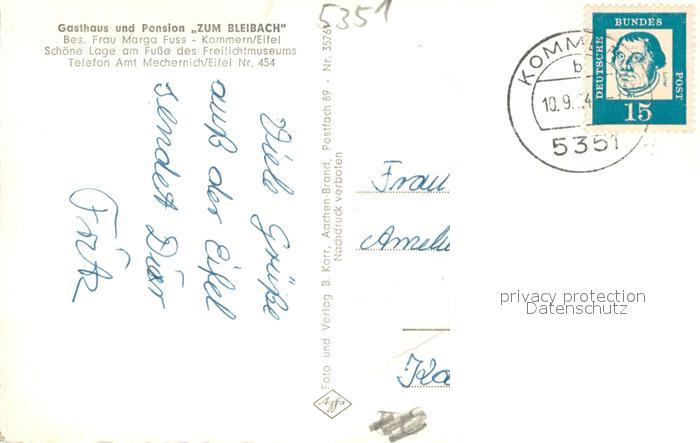 Gasthaus und Pension „ZUM BLEIBACH"
Bes. Frau Marga Fuss - Kommern/Eifel
Schöne Lage am Fuße des Freilichtmuseums
Telefon Amt Mechernich/Eifel Nr. 454
5351
Viele Grüße
auß der Eifel
sendet Dir
Fritz
Foto und Verlag B. Korr, Aachen-Brand, Postfach 89 - Nr. 3576
Nachdruck verboten
Agfa
KOMM
b
10.9. 4
5351
DEUTSCHE
BUNDES
POST
15
Frau
privacy protection
Datenschutz